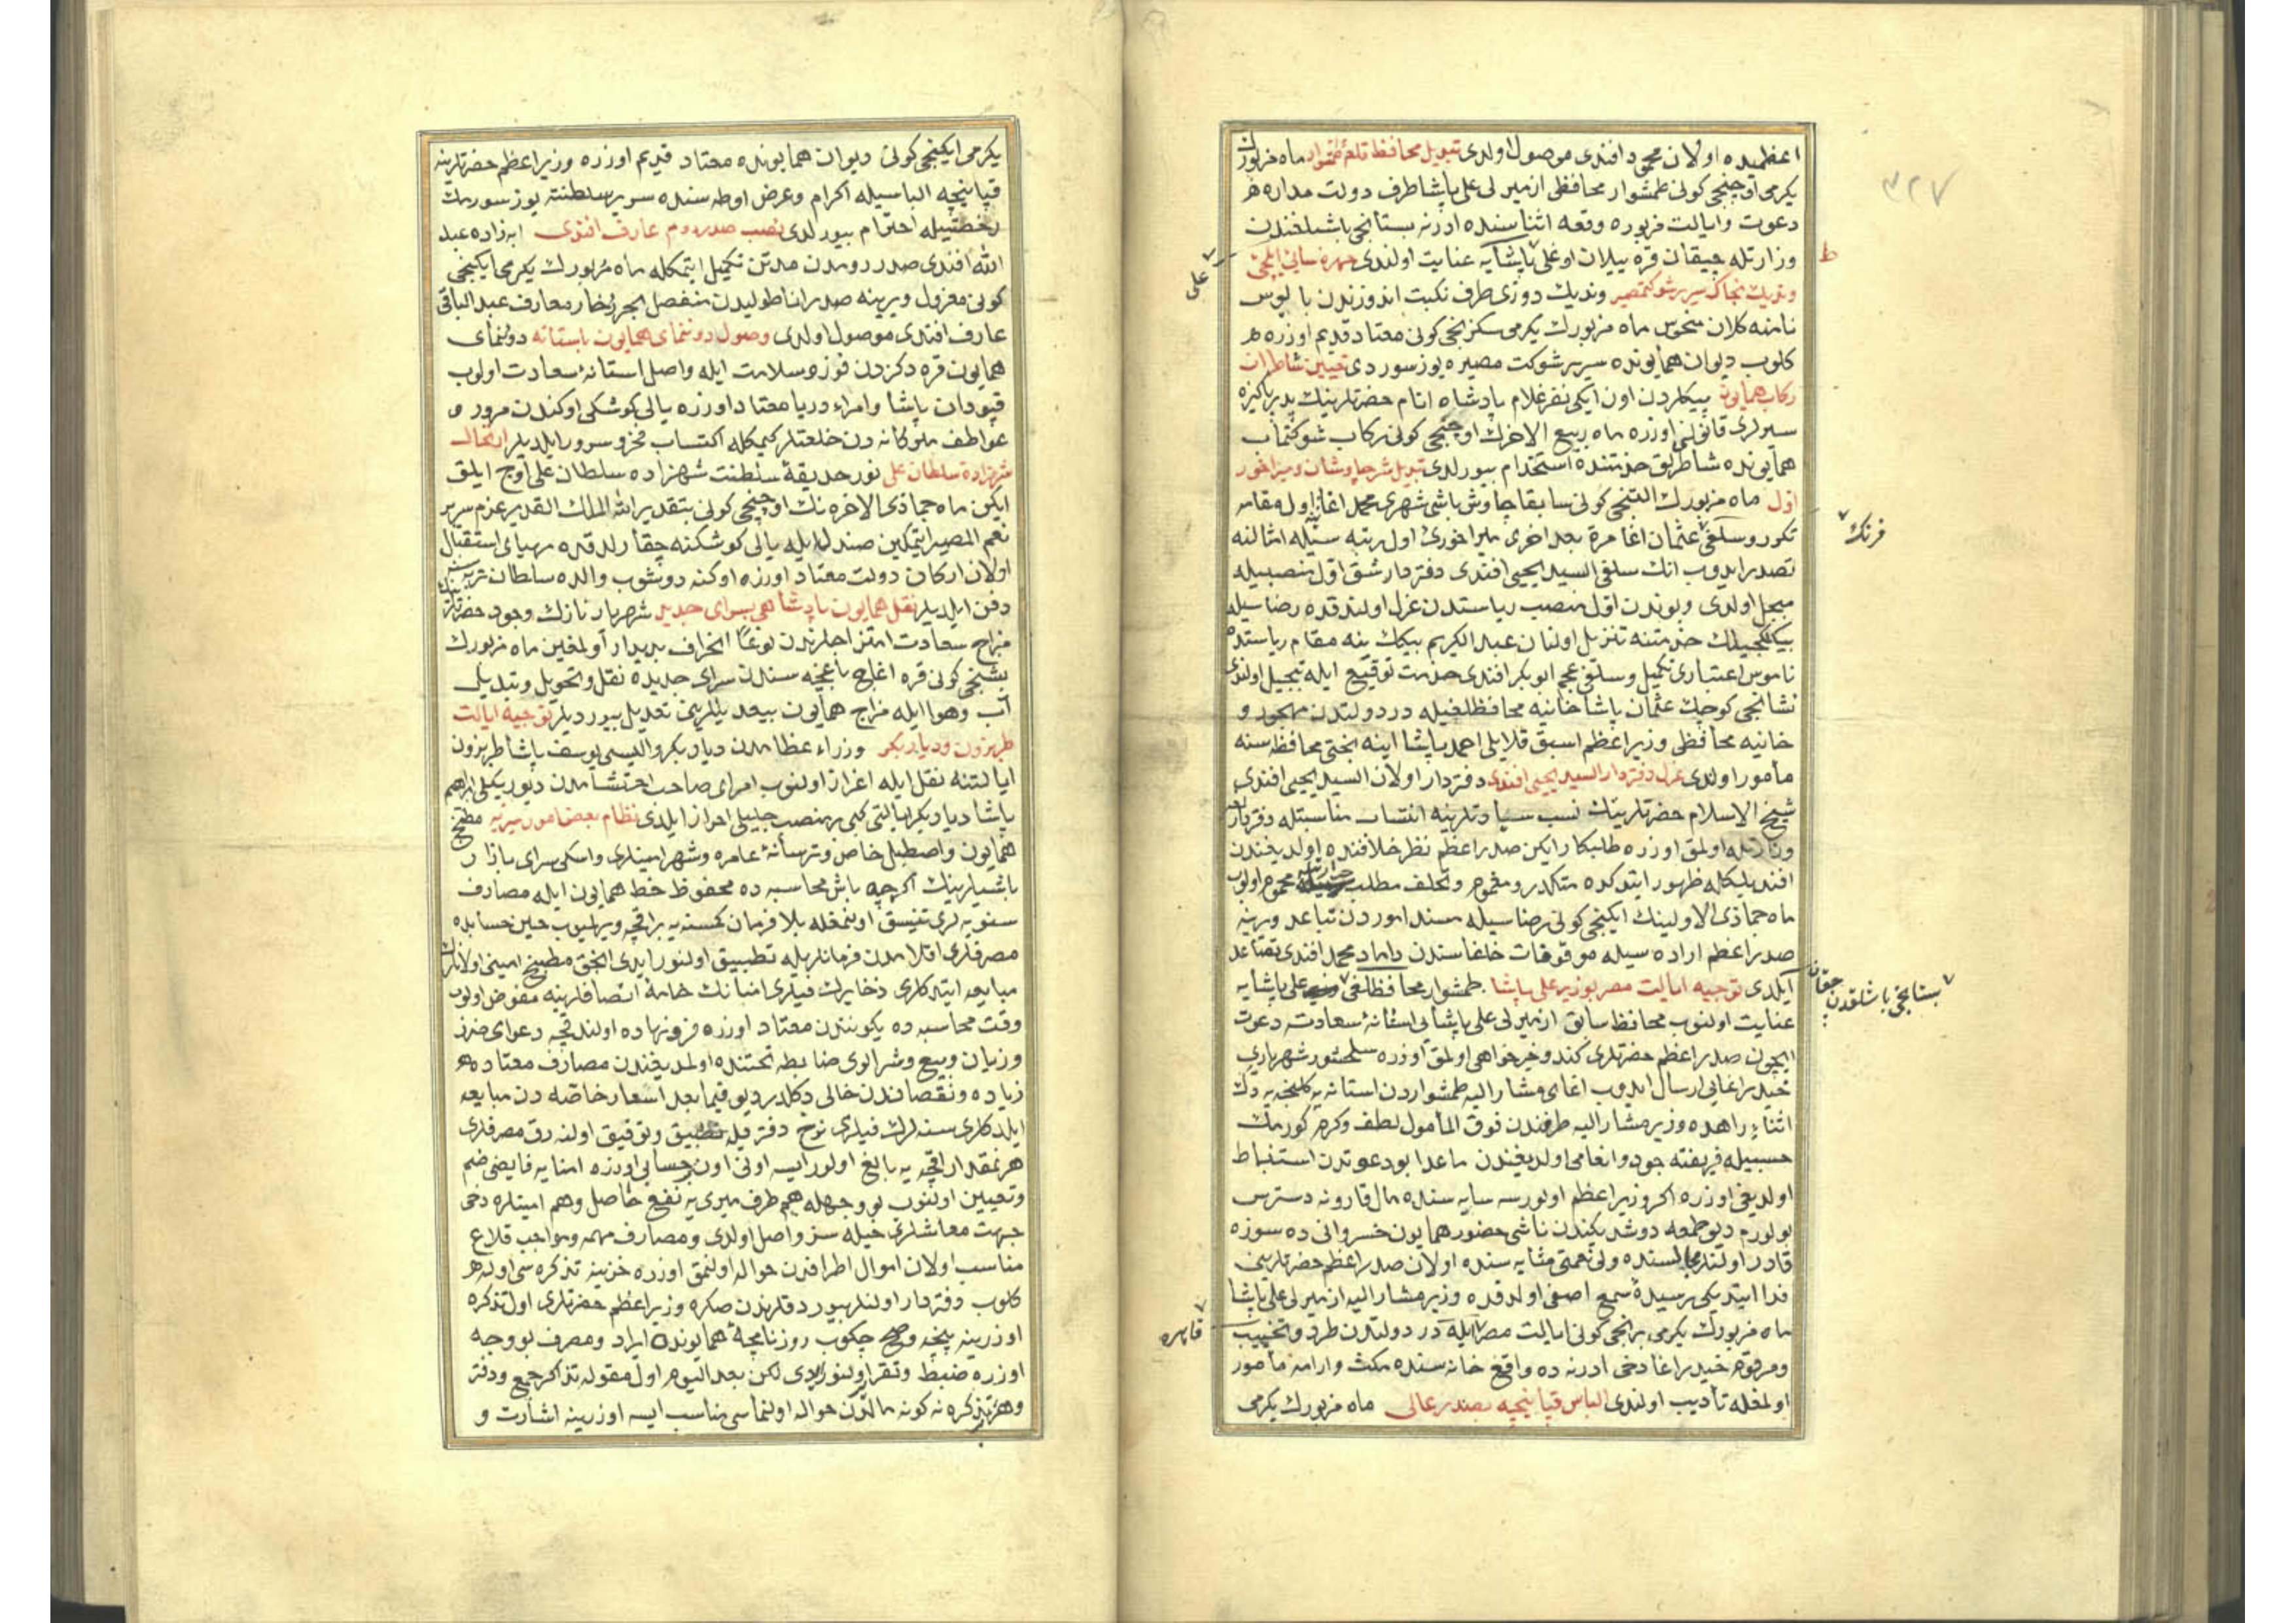 ٣٢٧
اعظمیده اولان محمود افندی موصول اولدی تبدیل محافظ قلعهٔ طمشوار ماه مزبورك
یکرمی اوچنجی کونی طمشوار محافظی ازمیرلی علی پاشا طرف دولت مداره
دعوت وایالت مزبوره وقعه اثناسنده ادرنه بستانجی باشیلغندن
وزارتله چیقان قره ییلان اوغلی پاشایه عنایت اولندی
علی
وندیك دوزی طرف نکبت اندوزندن بالیوس
نامنه کلان منحوس ماه مزبورك یکرمی سکزنجی کونی معتاد قدیم اوزره
کلوب دیوان همایونده سریر شوکت مصیره یوز سوردی تعیین شاطران
رکاب همایون بیکلردن اون ایکی نفر غلام پادشاه انام حضرتلرینك پدر پاکیزه
سیرلری قانونی اوزره ماه ربیع الاخرك اوچنجی کونی رکاب شوکتمآب
همایونده شاطرلق خدمتنده استخدام بیورلدی تبدیل سرچاوشان ومیراخور
اول ماه مزبورك التنجی کونی سابقا چاوش باشی شهری محمد اغا اول مقامه
فرنك
تکرور وسلفی عثمان اغا مرة بعد اخری میراخوری اول رتبه سیله امثالنه
تصدر ایدوب انك سلفی السید یحیی افندی دفتردار شق اول منصبیله
مبجل اولدی وبوندن اول منصب ریاستدن عزل اولندقده رضاسیله
بیکلکجیلك خدمتنه تنزیل اولنان عبد الکریم بیك ینه مقام ریاستده
ناموس اعتباری تکمیل وسلفی عجم ابوبکر افندی خدمت توقیع ایله تبجیل اولندی
نشانجی کوچك عثمان پاشا خانیه محافظلغیله در دولتدن مهجور و
خانیه محافظی وزیر اعظم اسبق قلایلی احمد پاشا اینه بختی محافظه سنه
مأمور اولدی عزل دفتردار السید یحیی افندی دفتردار اولان السید یحیی افندی
شیخ الاسلام حضرتلرینك نسب سیادتلرینه انتساب مناسبتله دفتردار
وزارتله اولمق اوزره طلبکار ایکن صدر اعظم نظر خلافنده اولدیغندن
ماه جماذی الاولینك ایکنجی کونی رضاسیله مسند اموردن تباعد ویرینه
صدر اعظم اراده سیله موقوفات خلفاسندن داماد محمد افندی تقاعد
ایلدی توجیه ایالت مصر بوزیر علی پاشا طمشوار محافظلغی علی پاشایه
بستانجی باشلقدن چقان
عنایت اولنوب محافظ سابق ازمیرلی علی پاشایی استانهٔ سعادته دعوت
ایچون صدر اعظم حضرتلری کندو خیرخواهی اولمق اوزره سلحشور شهریاری
حیدر اغایی ارسال ایدوب اغای مشار الیه طمشواردن استانه یه کلنجه یه دك
اثناء راهده وزیر مشار الیه طرفندن فوق المأمول لطف وکرم کورمك
حسبیله فریفتهٔ جود وانعامی اولدیغندن ماعدا بو دعوتدن استنباط
اولدیغی اوزره اکر وزیر اعظم اولورسه سایه سنده مال قارونه دسترس
بولورم دیو طمعه دوشدیکندن ناشی حضور همایون خسروانی ده سوزه
قادر اولنلر مجالسنده ولی نعمتی مثابه سنده اولان صدر اعظم حضرتلرینی
فدا ایتدیکی رسیدهٔ سمع اصفی اولدقده وزیر مشار الیه ازمیرلی علی پاشا
ماه مزبورك یکرمی برنجی کونی ایالت مصر ایله در دولتدن طرد وتخییب
قاهره
ومرقوم حیدر اغا دخی ادرنه ده واقع خانه سنده مکث وارامه مأمور
اولمغله تأدیب اولندی الباس قپانیچه بصدر عالی ماه مزبورك یکرمی
یکرمی ایکنجی کونی دیوان همایونده معتاد قدیم اوزره وزیر اعظم حضرتلرینه
قپانیچه الباسیله اکرام وعرض اوطه سنده سریر سلطنته یوز سورمك
رخصتیله احترام بیورلدی نصب صدر روم عارف افندی ابه زاده عبد
الله افندی صدر رومدن مدتن تکمیل ایتمکله ماه مزبورك یکرمی ایکنجی
کونی معزول ویرینه صدر اناطولیدن منفصل بحر زخار معارف عبد الباقی
عارف افندی موصول اولدی وصول دوننمای همایون باستانه دوننمای
همایون قره دکزدن فوز وسلامت ایله واصل استانهٔ سعادت اولوب
قپودان پاشا وامراء دریا معتاد اوزره یالی کوشکی اوکندن مرور و
عواطف ملوکانه دن خلعتلر کیمکله اکتساب فخر وسرور ایلدیلر ارتحال
شهزاده سلطان علی نور حدیقهٔ سلطنت شهزاده سلطان علی اوچ ایلق
ایکن ماه جماذی الاخره نك اوچنجی کونی بتقدیر الله الملك القدیر عزم سریر
نعم المصیر ایتمکین صندل ایله یالی کوشکنه چقارلدقده مهیای استقبال
اولان ارکان دولت معتاد اوزره اوکنه دوشوب والده سلطان تربه سنده
دفن ایلدیلر نقل همایون پادشاهی بسرای جدید شهریار نازك وجود حضرتلرینك
مزاج سعادت امتزاجلرندن نوعا انحراف بدیدار اولمغین ماه مزبورك
بشنجی کونی قره اغاج باغچه سندن سرای جدیده نقل وتحویل وتبدیل
آب وهوا ایله مزاج همایون بیعدیللرینی تعدیل بیوردیلر توجیه ایالت
طربزون ودیاربکر وزراء عظامدن دیاربکر والیسی یوسف پاشا طربزون
ایالتنه نقل ایله اعزاز اولنوب امرای صاحب احتشامدن دیوریکلی ابراهیم
پاشا دیاربکر ایالتی کبی بر منصب جلیلی احراز ایلدی نظام بعض امور میریه مطبخ
همایون واصطبل خاص وترسانهٔ عامره وشهر امینلری واسکی سرای بازار
باشیلرینك اکرچه باش محاسبه ده محفوظ خط همایون ایله مصارف
سنویه لری تنسیق اولنمغله بلا فرمان کمسنه یه بر اقچه ویرلمیوب حین حسابده
مصرفلری اقلامدن فرمانلریله تطبیق اولنور ایدی انجق مطبخ امینی اولانلرك
مبایعه ایتدکلری ذخایرك فیلری امنانك خامهٔ انصافلرینه مفوض اولوب
وقت محاسبه ده یکونندن معتاد اوزره فرونهاده اولندقجه دعوای ضرر
وزیان وبیع وشرالری ضابطه تحتنده اولمدیغندن مصارف معتاده
زیاده ونقصاندن خالی دکلدر دیو فیما بعد اسعار خاصه دن مبایعه
ایلدکلری سنه لرك فیلری نرخ دفتریله تطبیق وتوفیق اولنه رق مصرفلری
هر نمقدار اقچه یه بالغ اولور ایسه اونی اون بر حسابی اوزره امنایه فایضی ضم
وتعیین اولنوب بو وجهله هم طرف میری یه نفع حاصل وهم امینلره دخی
جهت معاشلری حیله سز واصل اولدی ومصارف مهمه ومواجب قلاع
مناسب اولان اموال اطرافدن حواله اولنمق اوزره خزینه تذکره سی اوله
کلوب دفتردار اولنلر بیوردقلرندن صکره وزیر اعظم حضرتلری اول تذکره
اوزرینه پنچه وصح چکوب روزنامچهٔ همایونده ایراد ومصرف بو وجه
اوزره ضبط وتقرر اولنور ایدی لکن بعد الیوم اول مقوله تذاکر جمع ودفتر
وهر تذکره نه کونه مالدن حواله اولنماسی مناسب ایسه اوزرینه اشارت و